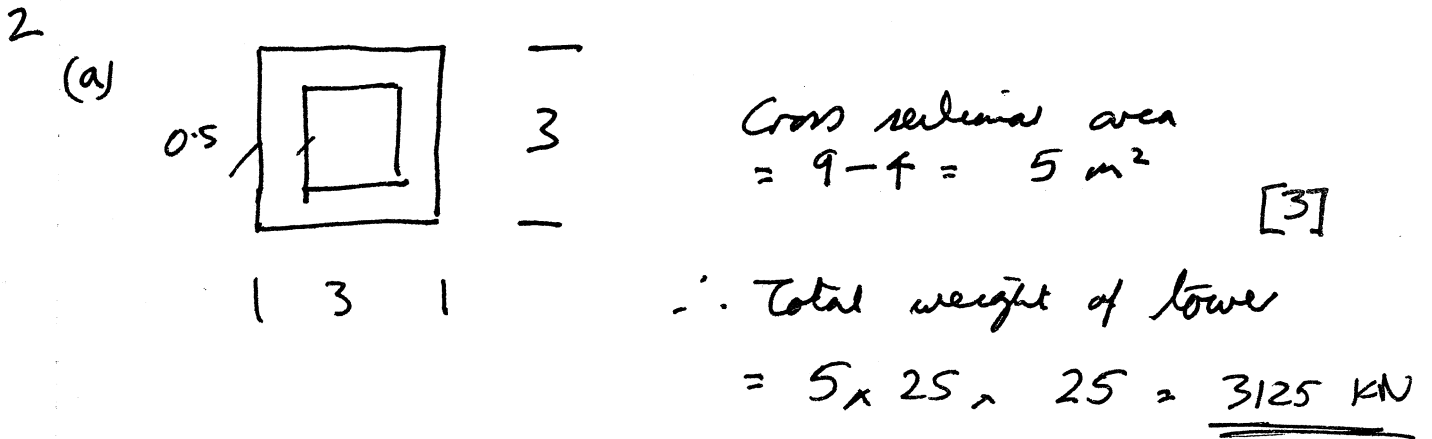 2
(a)
0.5
3
Cross sectional area
= 9 - 4 = 5 m²
[3]
| 3 |
∴ Total weight of tower
= 5 × 25 × 25 = 3125 KN